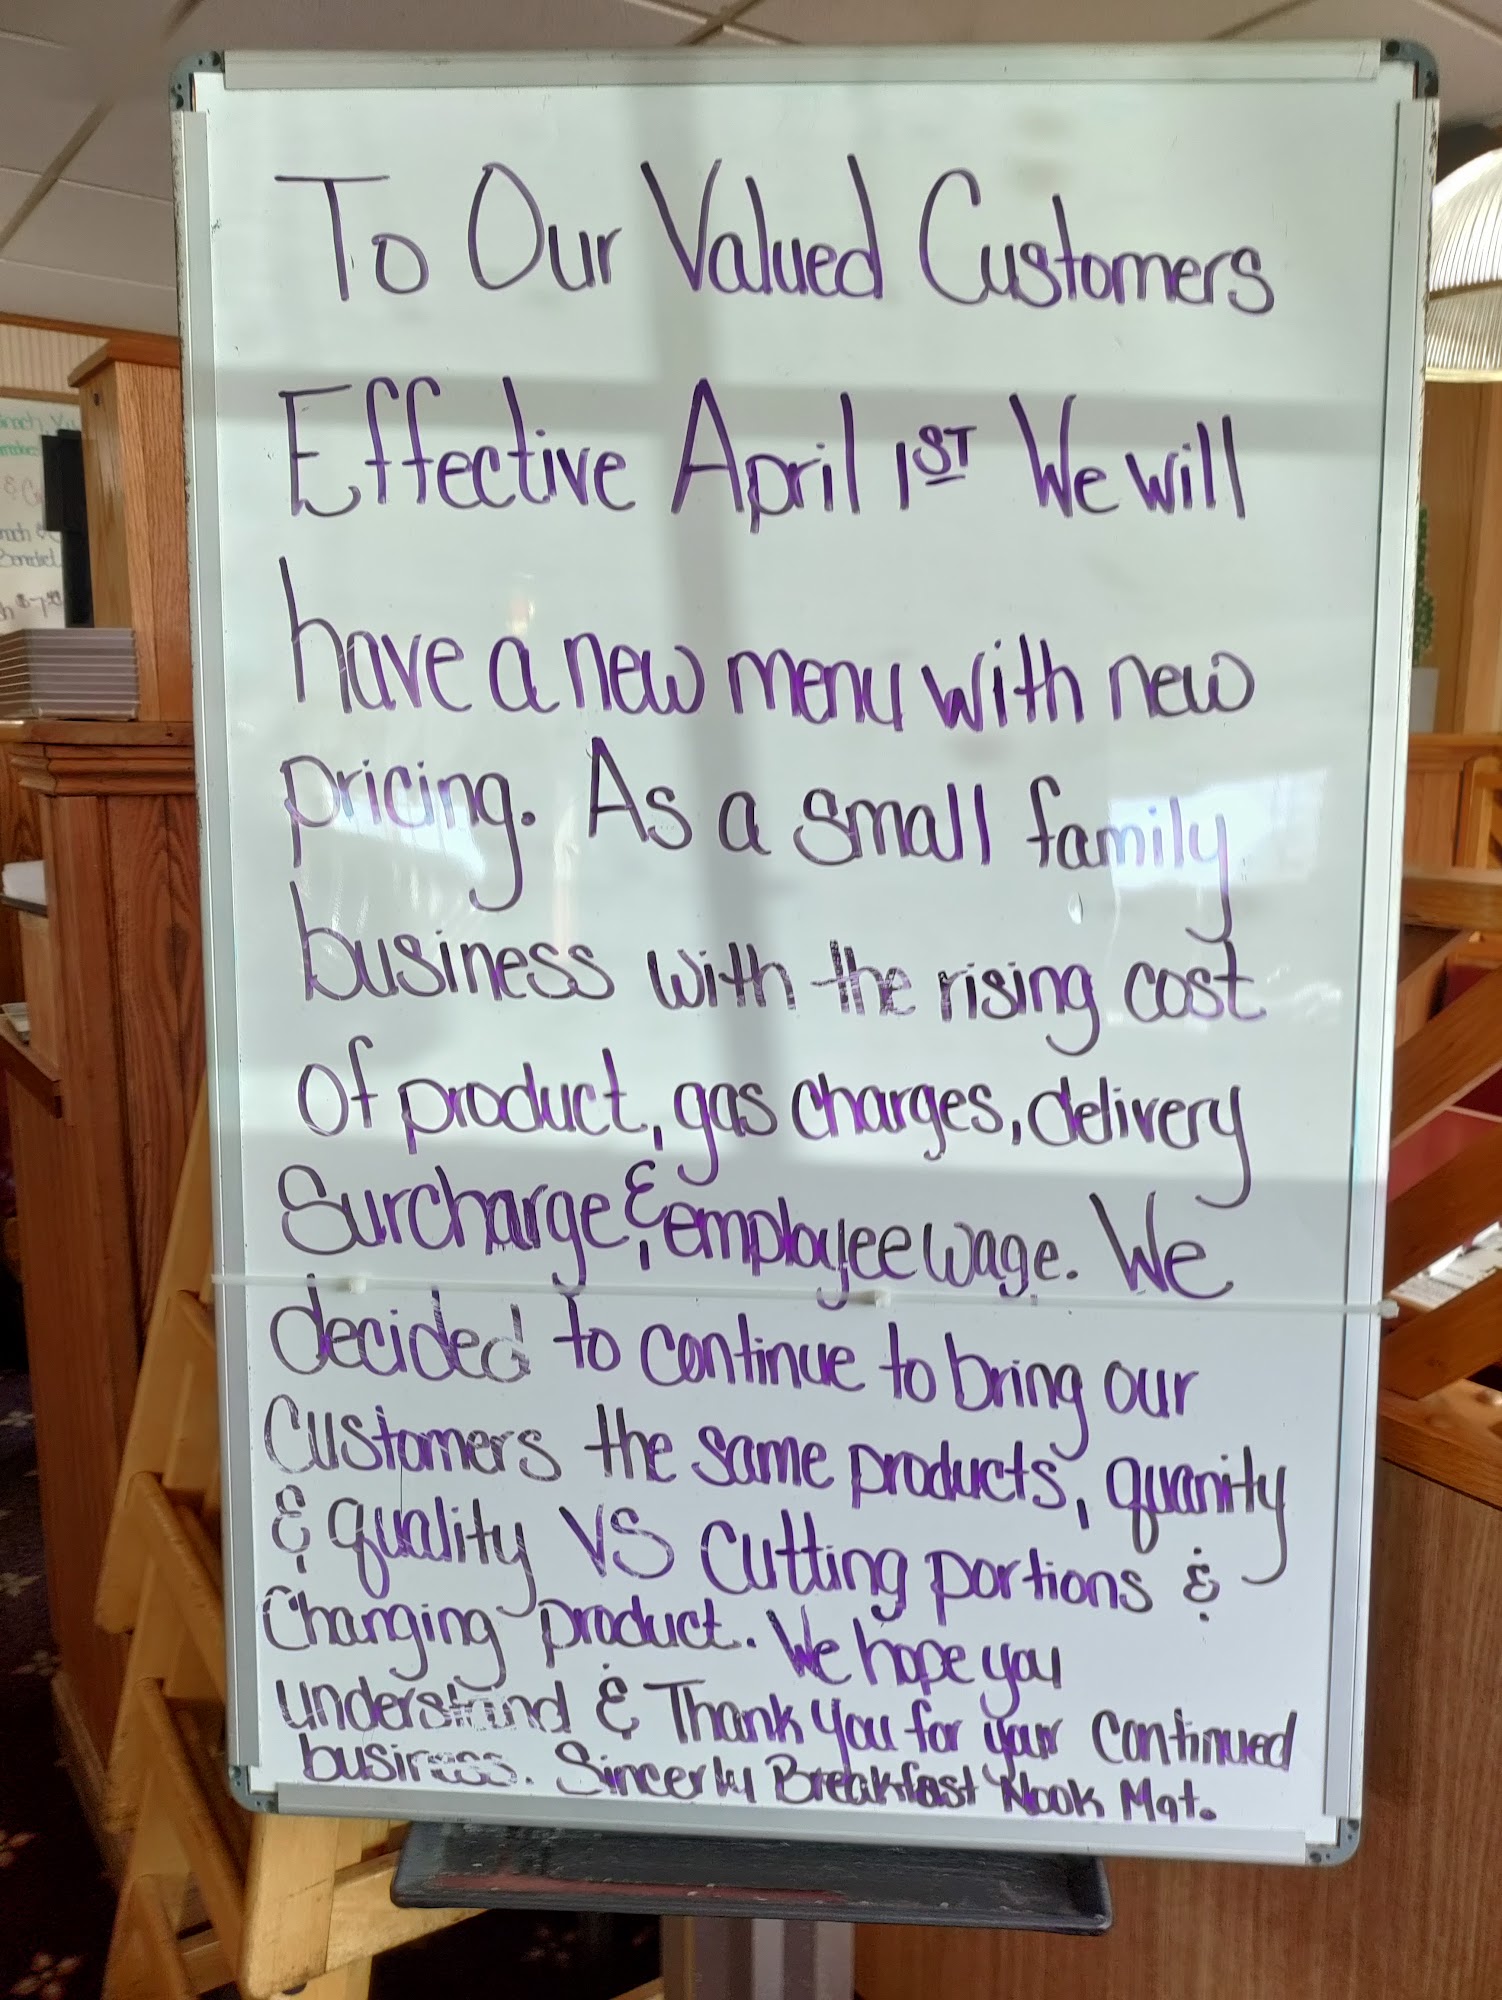 To Our Valued Customers
Effective April 1ST We will
have a new menu with new
pricing. As a small family
business with the rising cost
of product, gas charges, delivery
Surcharge & employee wage. We
decided to continue to bring our
Customers the same products, quanity
& quality VS cutting portions &
Changing product. We hope you
understand & Thank you for your continued
business. Sincerly Breakfast Nook Mgt.